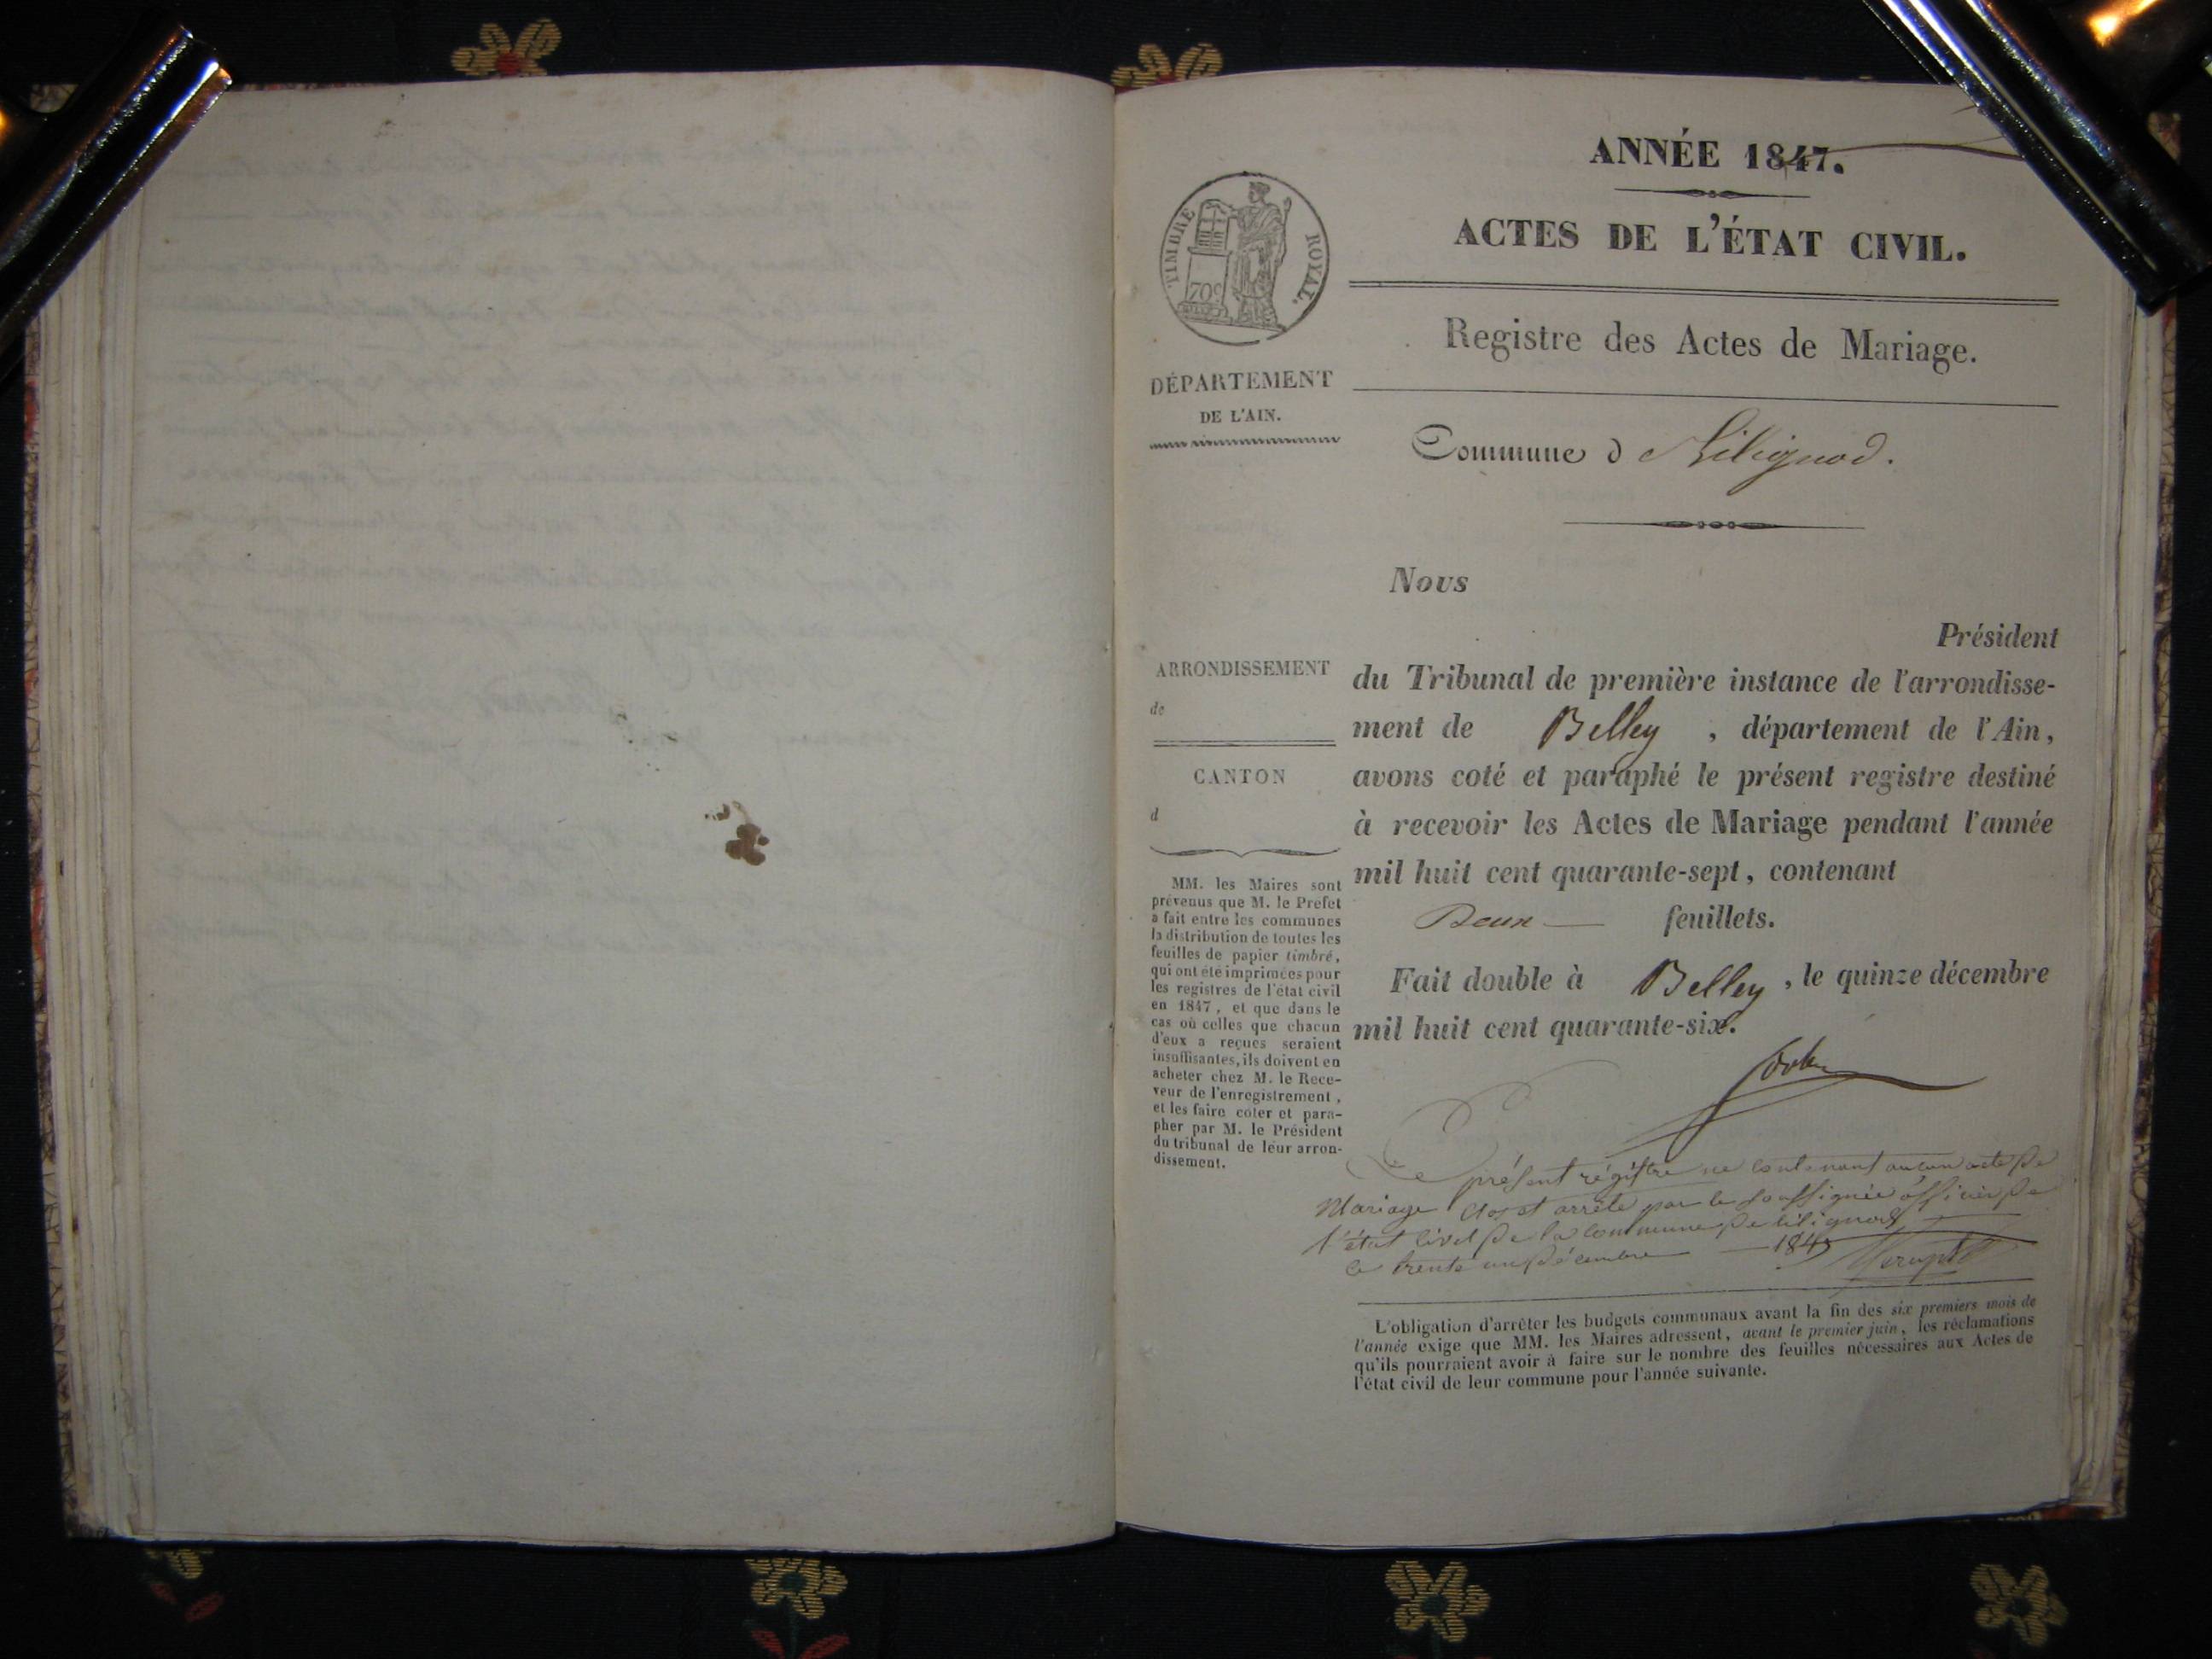 ANNÉE 1847.
ACTES DE L'ÉTAT CIVIL.
Registre des Actes de Mariage.
TIMBRE ROYAL.
70c
DÉPARTEMENT
DE L'AIN.
Commune d Lilignod.
Nous
Président
du Tribunal de première instance de l'arrondisse-
ment de Belley , département de l'Ain,
avons coté et paraphé le présent registre destiné
à recevoir les Actes de Mariage pendant l'année
mil huit cent quarante-sept, contenant
Deux feuillets.
Fait double à Belley , le quinze décembre
mil huit cent quarante-six.
ARRONDISSEMENT
de
CANTON
d
MM. les Maires sont
prévenus que M. le Préfet
a fait entre les communes
la distribution de toutes les
feuilles de papier timbré,
qui ont été imprimées pour
les registres de l'état civil
en 1847, et que dans le
cas où celles que chacun
d'eux a reçues seraient
insuffisantes, ils doivent en
acheter chez M. le Rece-
veur de l'enregistrement,
et les faire coter et para-
pher par M. le Président
du tribunal de leur arron-
dissement.
Le présent régistre ne contenant aucun acte de
Mariage clos et arrêté par le soussignée officier de
l'état civil de la commune de lilignod
le trente un décembre 1847
L'obligation d'arrêter les budgets communaux avant la fin des six premiers mois de
l'année exige que MM. les Maires adressent, avant le premier juin, les réclamations
qu'ils pourraient avoir à faire sur le nombre des feuilles nécessaires aux Actes de
l'état civil de leur commune pour l'année suivante.